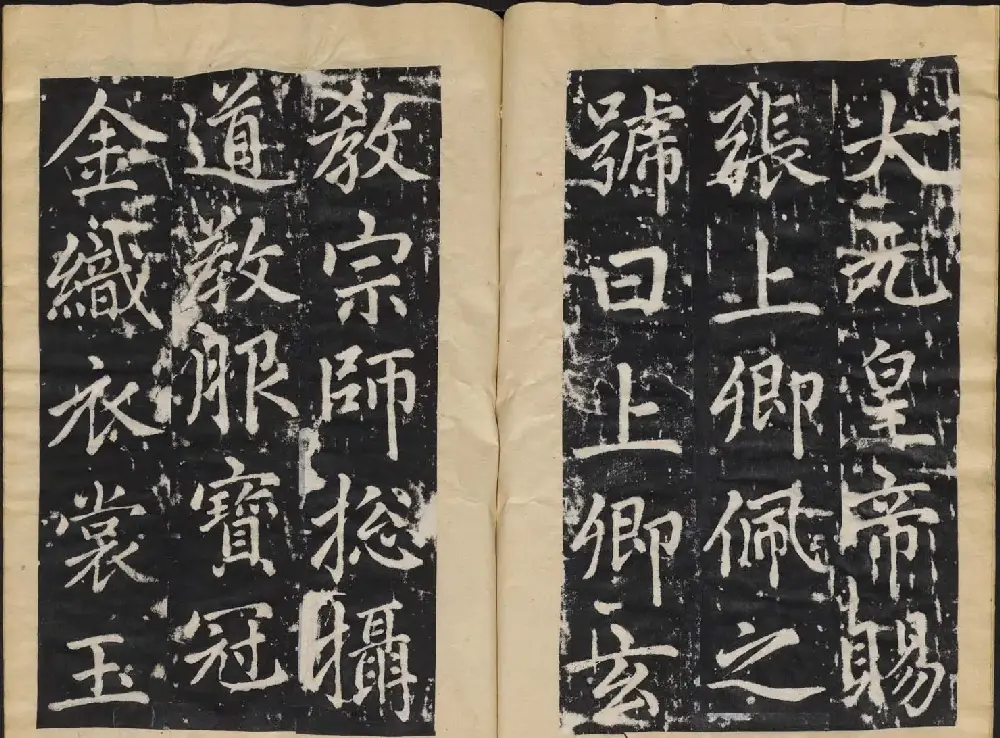 大元皇帝賜
張上卿佩之
號曰上卿玄
教宗師捴攝
道教服寶冠
金織衣裳玉